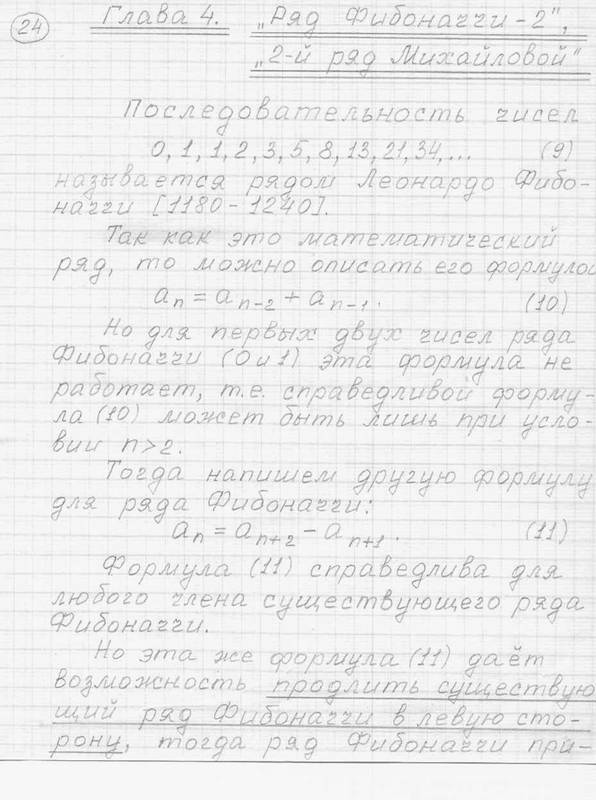 24
Глава 4. „Ряд Фибоначчи-2",
„2-й ряд Михайловой"
Последовательность чисел
0, 1, 1, 2, 3, 5, 8, 13, 21, 34,... (9)
называется рядом Леонардо Фибо-
наччи [1180-1240].
Так как это математический
ряд, то можно описать его формулой
aₙ = aₙ₋₂ + aₙ₋₁. (10)
Но для первых двух чисел ряда
Фибоначчи (0 и 1) эта формула не
работает, т.е. справедливой форму-
ла (10) может быть лишь при усло-
вии n>2.
Тогда напишем другую формулу
для ряда Фибоначчи:
aₙ = aₙ₊₂ - aₙ₊₁. (11)
Формула (11) справедлива для
любого члена существующего ряда
Фибоначчи.
Но эта же формула (11) даёт
возможность продлить существую
щий ряд Фибоначчи в левую сто-
рону, тогда ряд Фибоначчи при-